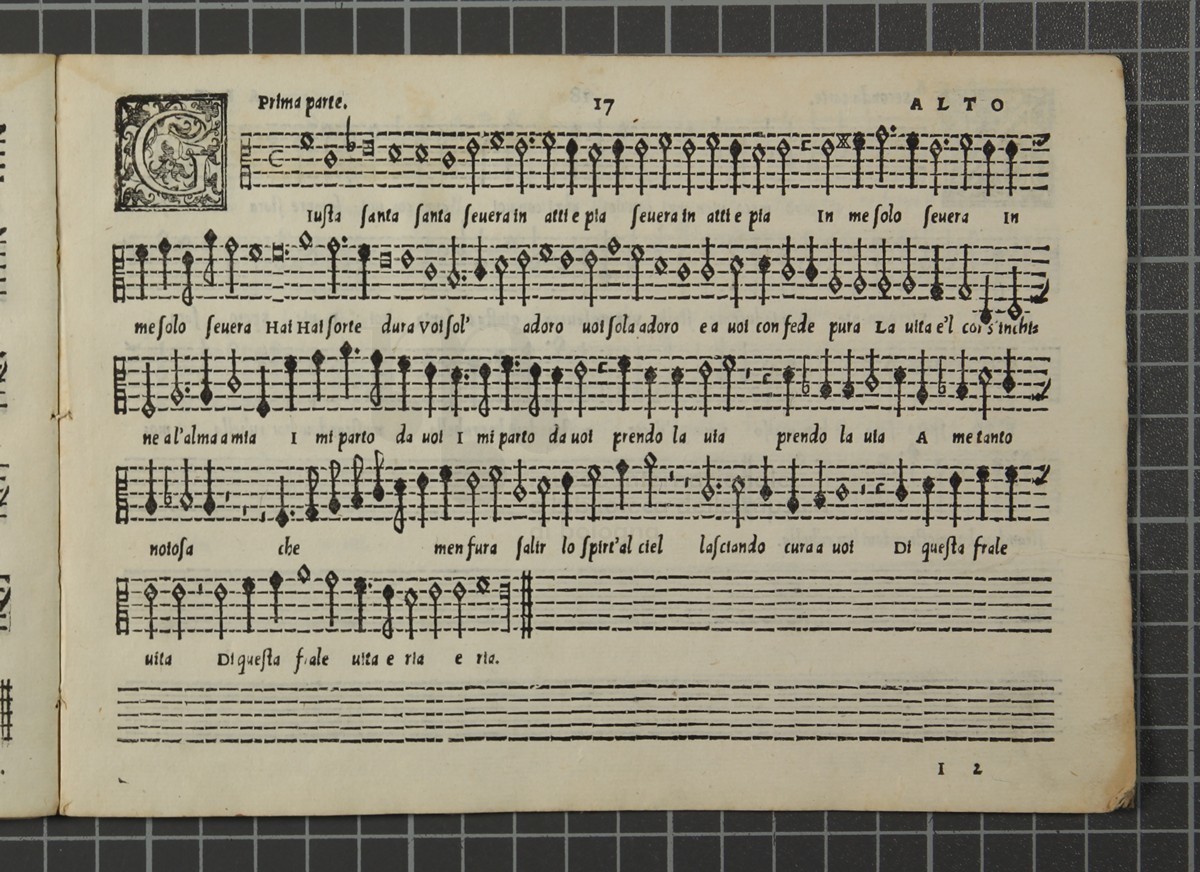 Prima parte. 17 ALTO
GIusta santa santa seuera in atti e pia seuera in atti e pia In me solo seuera In
me solo seuera Hai Hai forte dura Voi sol' adoro uoi sola adoro e a uoi con fede pura La uita e'l cor s'inchi
ne a l'alma a mia I mi parto da uoi I mi parto da uoi prendo la uia prendo la uia A me tanto
noiosa che men fura salir lo spirt'al ciel lasciando cura a uoi Di questa frale
uita Di questa frale uita e ria e ria.
I 2